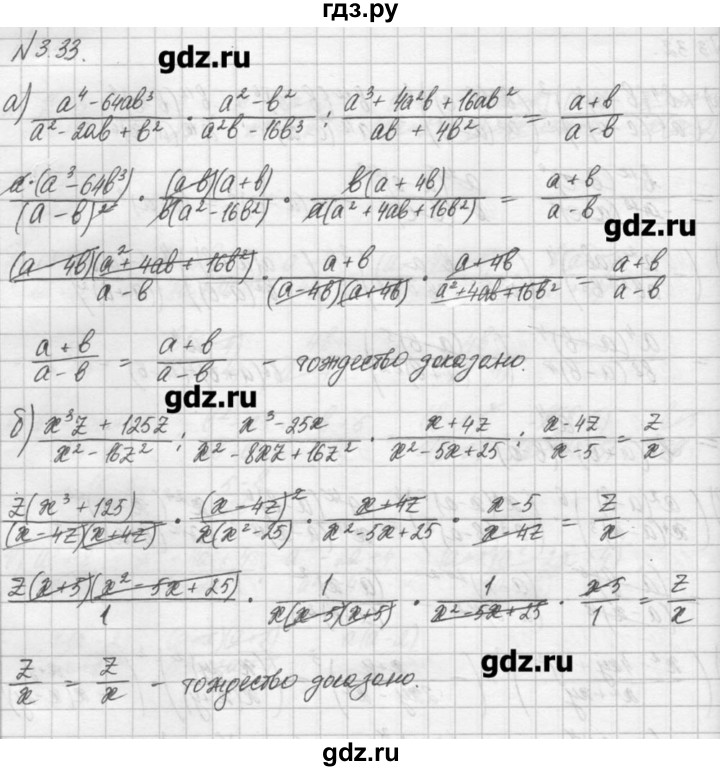 гдз.ру
N3.33.
gdz.ru
а) (a⁴-64ab³)/(a²-2ab+b²) · (a²-b²)/(a²b-16b³) : (a³+4a²b+16ab²)/(ab+4b²) = (a+b)/(a-b)
a·(a³-64b³)/(a-b)² · (a-b)(a+b)/b(a²-16b²) · b(a+4b)/a(a²+4ab+16b²) = (a+b)/(a-b)
gdz.ru
(a-4b)(a²+4ab+16b²)/(a-b) · (a+b)/(a-4b)(a+4b) · (a+4b)/(a²+4ab+16b²) = (a+b)/(a-b)
(a+b)/(a-b) = (a+b)/(a-b) - тождество доказано.
gdz.ru
б) (x³z+125z)/(x²-16z²) : (x³-25x)/(x²-8xz+16z²) · (x+4z)/(x²-5x+25) : (x-4z)/(x-5) = z/x
z(x³+125)/(x-4z)(x+4z) · (x-4z)²/x(x²-25) · (x+4z)/(x²-5x+25) · (x-5)/(x-4z) = z/x
z(x+5)(x²-5x+25)/1 · 1/x(x-5)(x+5) · 1/(x²-5x+25) · (x-5)/1 = z/x
gdz.ru
z/x = z/x - тождество доказано.
gdz.ru